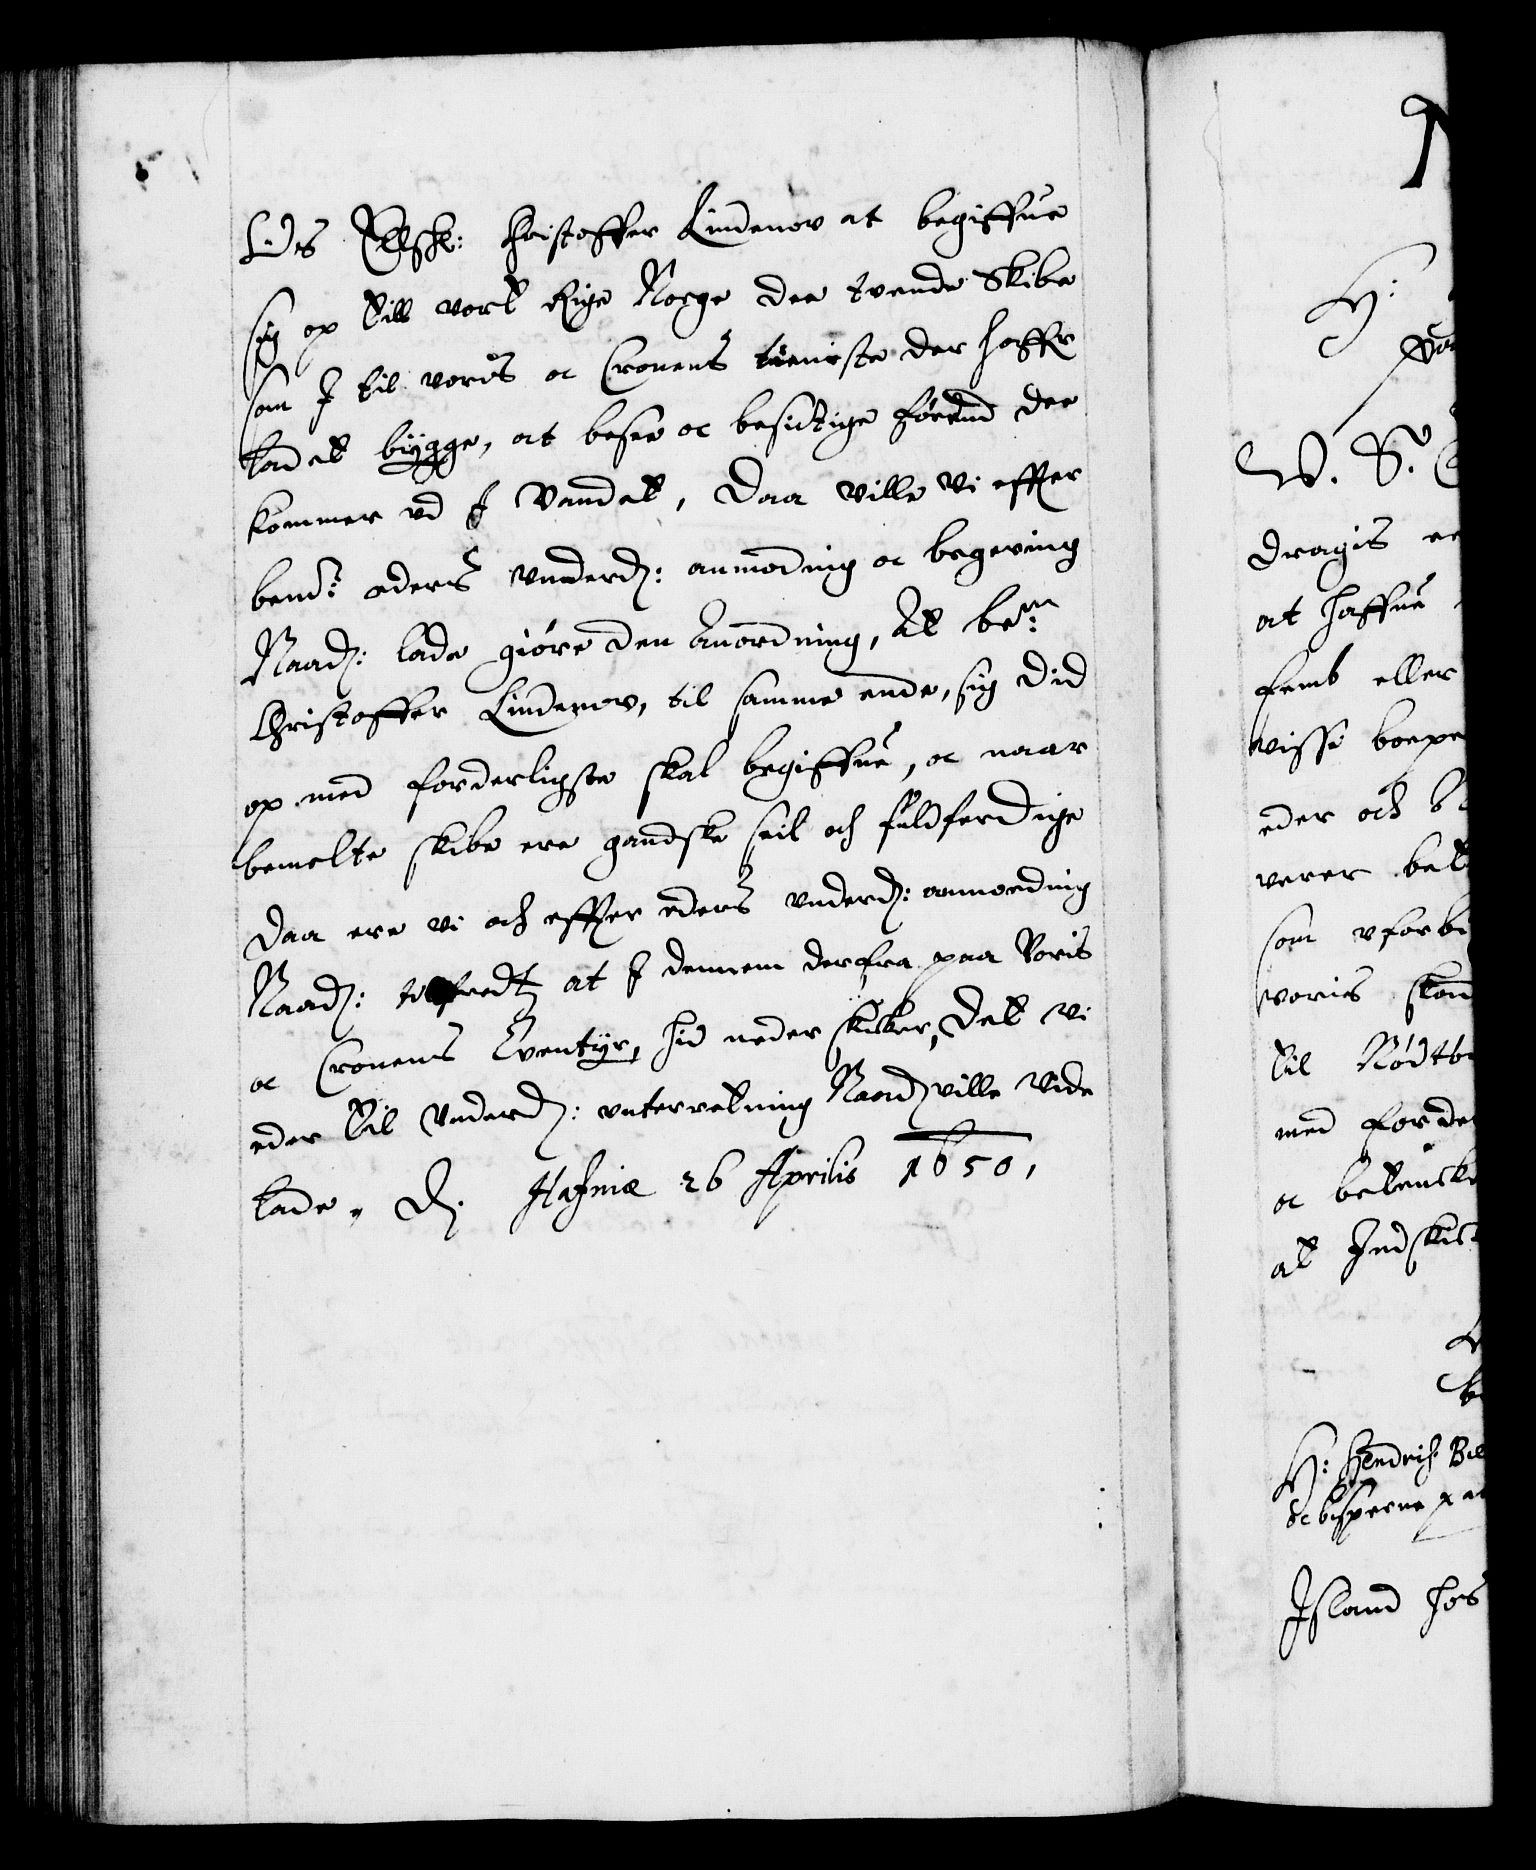 Os Elschl: Christoffer Lindenov at begiffue
sig op till vort Rige Norge dee tvende Skibe
som I til voris oc Cronens tieniste der haffr
ladet bygge, at besee oc besictige förend dee
kommer ud I Vandet, Daa ville vi effter
bemt: eders underd: anmoding oc begering
Naad: lade giöre den Anordning, At bete:
Christoffer Lindenov, til samme ende, sig did
op med forderligste skal begiffue, oc naar
bemelte skibe ere gandske seil och fuldferdige
Daa ere vi och effter eders underd: anmoding
Naad: tilfredtz at I dennem derfra paa Voris
oc Cronens Eventyr, hid neder skicker, Det vi
eder til Underd: unterretning Naad: ville vide
lade, D. Hafniæ 26 Aprilis 1650,
N
H:
W. S.
dragis
at haffue
femb eller
visse
eder och
verer
som
voris
til Nödt
med forde
oc betencke
at Indskick
H: Hendrich Bil
oc bisperne paa
Island hos